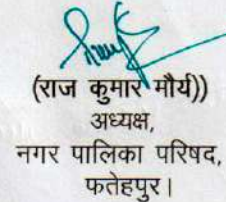 (राज कुमार मौर्य))
अध्यक्ष,
नगर पालिका परिषद,
फतेहपुर।